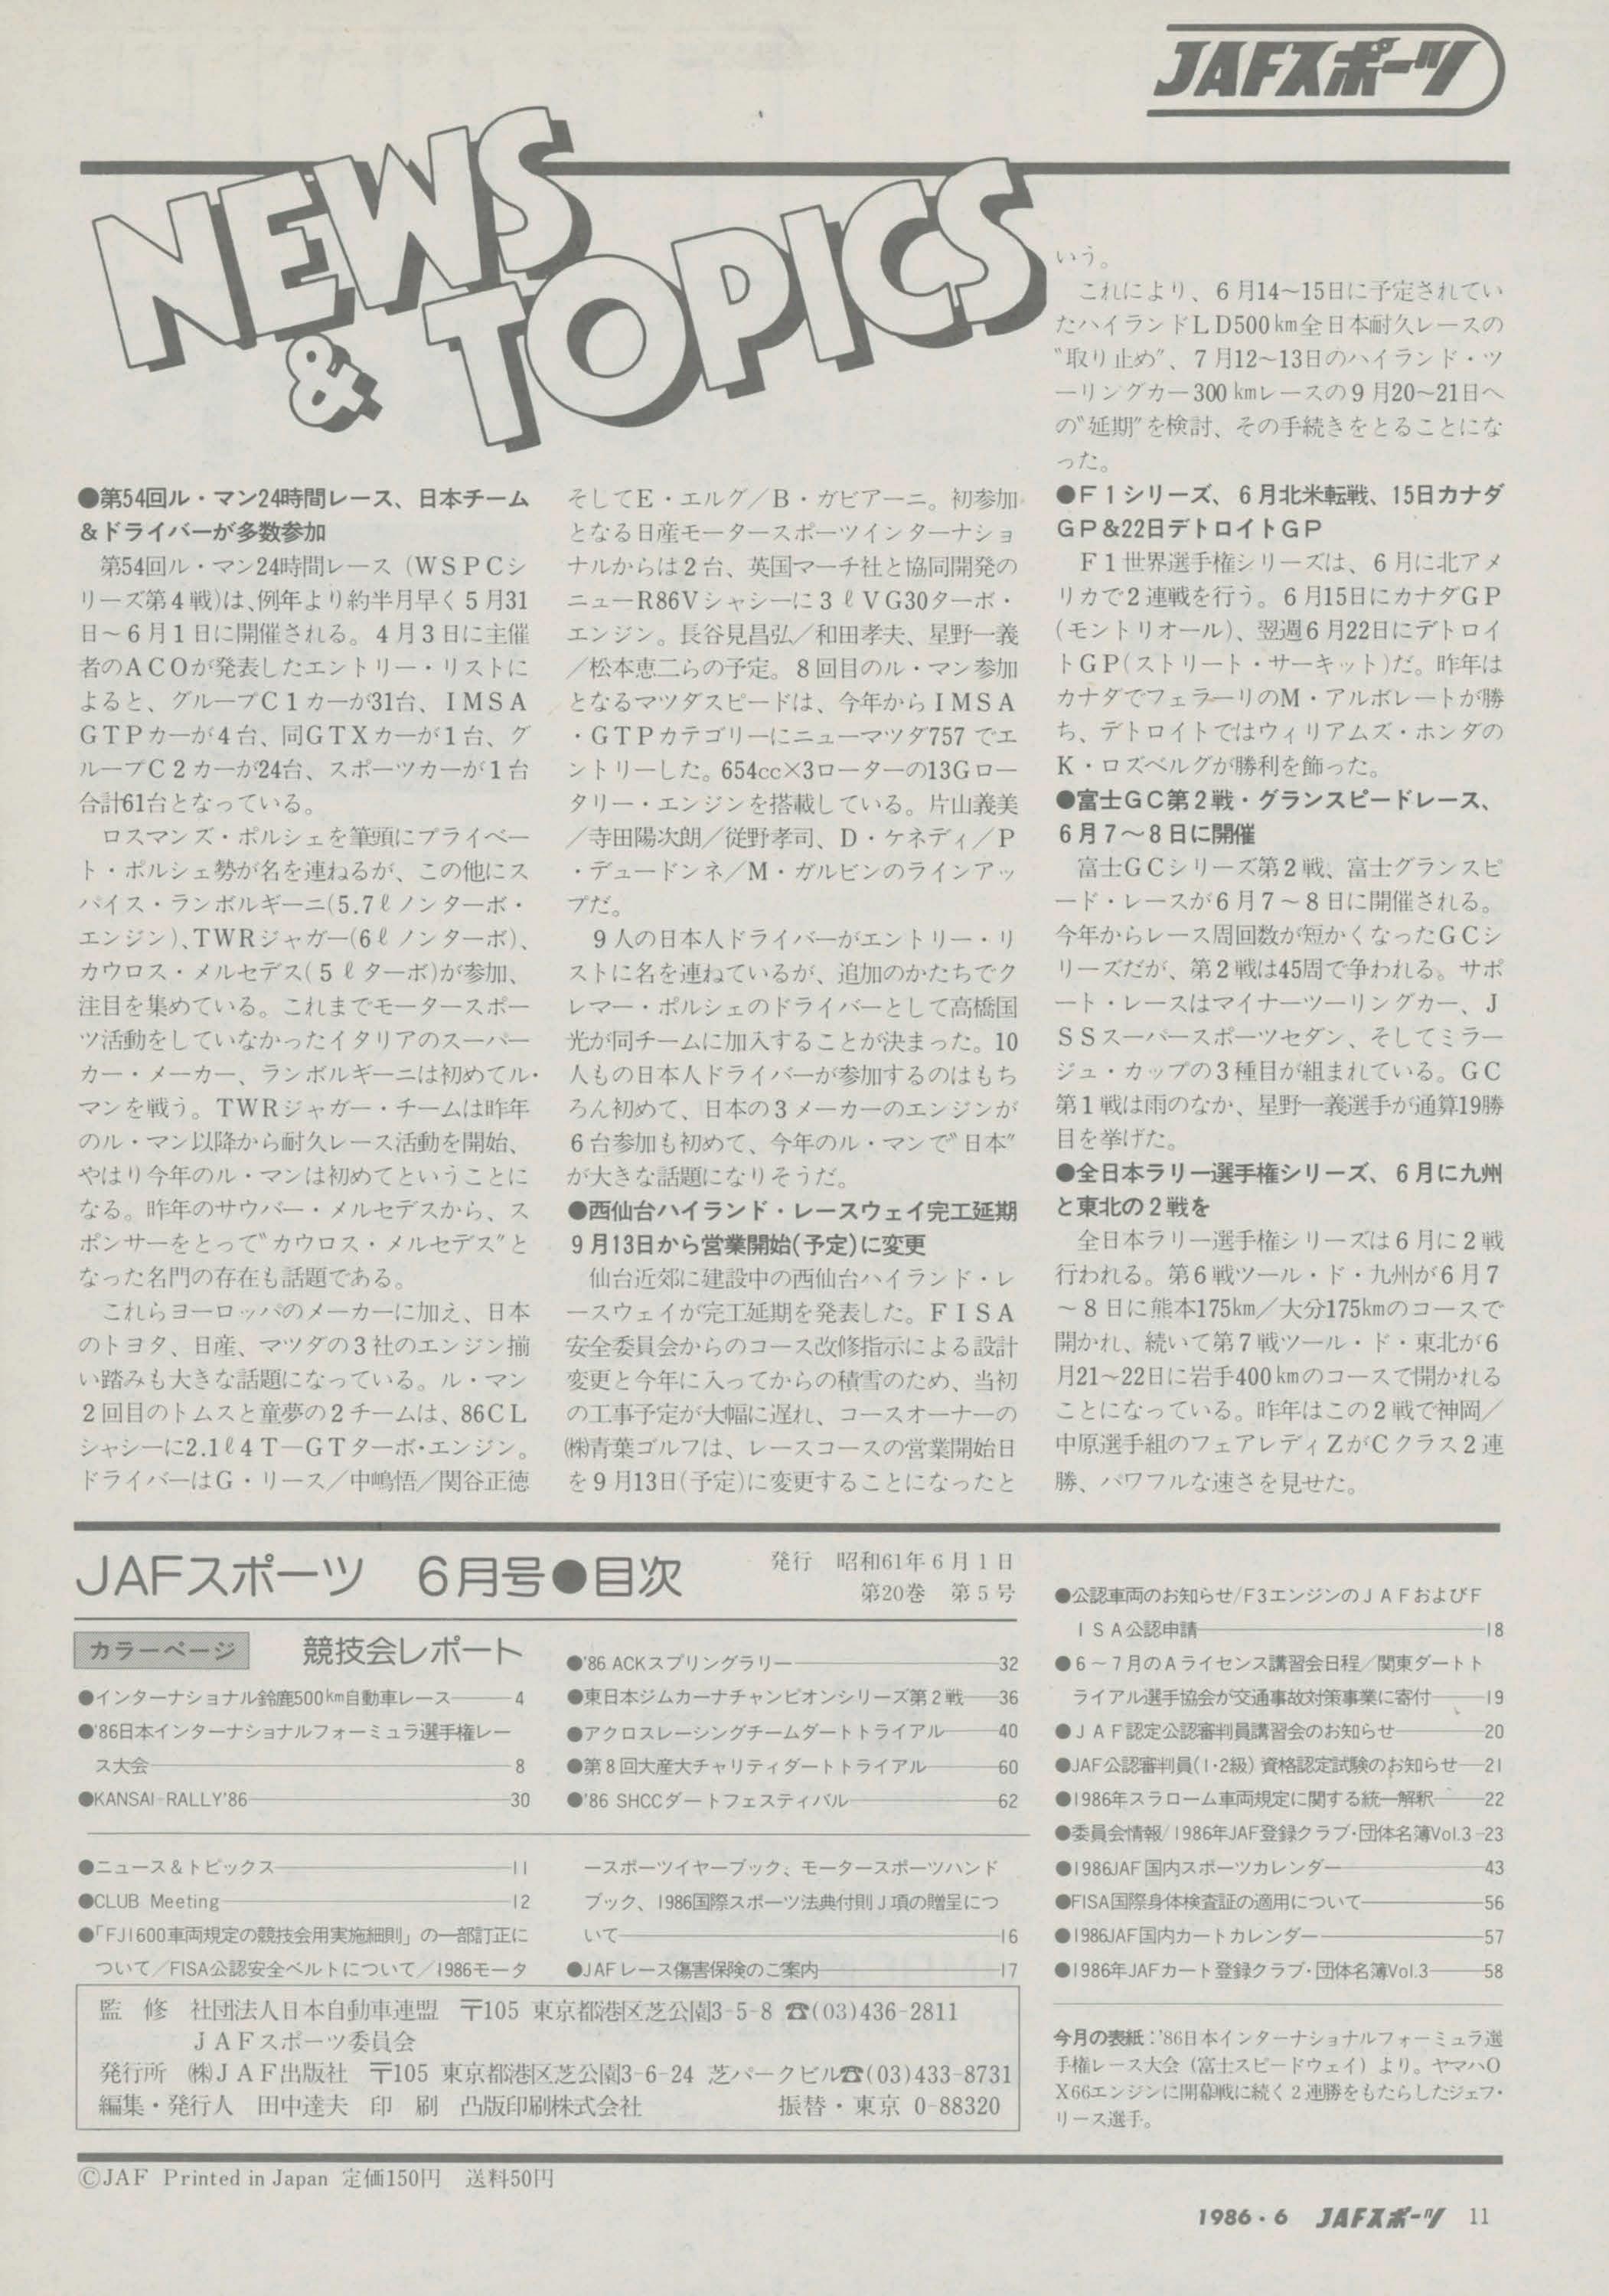 JAFスポーツ
NEWS
&
TOPICS
●第54回ル・マン24時間レース、日本チーム
&ドライバーが多数参加
第54回ル・マン24時間レース(WSPCシ
リーズ第4戦)は、例年より約半月早く5月31
日〜6月1日に開催される。4月3日に主催
者のACOが発表したエントリー・リストに
よると、グループC1カーが31台、IMSA
GTPカーが4台、同GTXカーが1台、グ
ループC2カーが24台、スポーツカーが1台
合計61台となっている。
ロスマンズ・ポルシェを筆頭にプライベー
ト・ポルシェ勢が名を連ねるが、この他にス
パイス・ランボルギーニ(5.7ℓノンターボ・
エンジン)、TWRジャガー(6ℓノンターボ)、
カウロス・メルセデス(5ℓターボ)が参加、
注目を集めている。これまでモータースポー
ツ活動をしていなかったイタリアのスーパー
カー・メーカー、ランボルギーニは初めてル・
マンを戦う。TWRジャガー・チームは昨年
のル・マン以降から耐久レース活動を開始、
やはり今年のル・マンは初めてということに
なる。昨年のサウバー・メルセデスから、ス
ポンサーをとって"カウロス・メルセデス"と
なった名門の存在も話題である。
これらヨーロッパのメーカーに加え、日本
のトヨタ、日産、マツダの3社のエンジン揃
い踏みも大きな話題になっている。ル・マン
2回目のトムスと童夢の2チームは、86CL
シャシーに2.1ℓ4T—GTターボ・エンジン。
ドライバーはG・リース/中嶋悟/関谷正徳
そしてE・エルグ/B・ガビアーニ。初参加
となる日産モータースポーツインターナショ
ナルからは2台、英国マーチ社と協同開発の
ニューR86Vシャシーに3ℓVG30ターボ・
エンジン。長谷見昌弘/和田孝夫、星野一義
/松本恵二らの予定。8回目のル・マン参加
となるマツダスピードは、今年からIMSA
・GTPカテゴリーにニューマツダ757でエ
ントリーした。654cc×3ローターの13Gロー
タリー・エンジンを搭載している。片山義美
/寺田陽次朗/従野孝司、D・ケネディ/P
・デュードンネ/M・ガルビンのラインアッ
プだ。
9人の日本人ドライバーがエントリー・リ
ストに名を連ねているが、追加のかたちでク
レマー・ポルシェのドライバーとして高橋国
光が同チームに加入することが決まった。10
人もの日本人ドライバーが参加するのはもち
ろん初めて、日本の3メーカーのエンジンが
6台参加も初めて、今年のル・マンで"日本"
が大きな話題になりそうだ。
●西仙台ハイランド・レースウェイ完工延期
9月13日から営業開始(予定)に変更
仙台近郊に建設中の西仙台ハイランド・レ
ースウェイが完工延期を発表した。FISA
安全委員会からのコース改修指示による設計
変更と今年に入ってからの積雪のため、当初
の工事予定が大幅に遅れ、コースオーナーの
㈱青葉ゴルフは、レースコースの営業開始日
を9月13日(予定)に変更することになったと
いう。
これにより、6月14〜15日に予定されてい
たハイランドLD500km全日本耐久レースの
"取り止め"、7月12〜13日のハイランド・ツ
ーリングカー300kmレースの9月20〜21日へ
の"延期"を検討、その手続きをとることにな
った。
●F1シリーズ、6月北米転戦、15日カナダ
GP&22日デトロイトGP
F1世界選手権シリーズは、6月に北アメ
リカで2連戦を行う。6月15日にカナダGP
(モントリオール)、翌週6月22日にデトロイ
トGP(ストリート・サーキット)だ。昨年は
カナダでフェラーリのM・アルボレートが勝
ち、デトロイトではウィリアムズ・ホンダの
K・ロズベルグが勝利を飾った。
●富士GC第2戦・グランスピードレース、
6月7〜8日に開催
富士GCシリーズ第2戦、富士グランスピ
ード・レースが6月7〜8日に開催される。
今年からレース周回数が短かくなったGCシ
リーズだが、第2戦は45周で争われる。サポ
ート・レースはマイナーツーリングカー、J
SSスーパースポーツセダン、そしてミラー
ジュ・カップの3種目が組まれている。GC
第1戦は雨のなか、星野一義選手が通算19勝
目を挙げた。
●全日本ラリー選手権シリーズ、6月に九州
と東北の2戦を
全日本ラリー選手権シリーズは6月に2戦
行われる。第6戦ツール・ド・九州が6月7
〜8日に熊本175km/大分175kmのコースで
開かれ、続いて第7戦ツール・ド・東北が6
月21〜22日に岩手400kmのコースで開かれる
ことになっている。昨年はこの2戦で神岡/
中原選手組のフェアレディZがCクラス2連
勝、パワフルな速さを見せた。
JAFスポーツ 6月号●目次
発行 昭和61年6月1日
第20巻 第5号
カラーページ 競技会レポート
●インターナショナル鈴鹿500km自動車レース——4
●'86日本インターナショナルフォーミュラ選手権レー
ス大会——8
●KANSAI-RALLY'86——30
●'86 ACKスプリングラリー——32
●東日本ジムカーナチャンピオンシリーズ第2戦——36
●アクロスレーシングチームダートトライアル——40
●第8回大産大チャリティダートトライアル——60
●'86 SHCCダートフェスティバル——62
●ニュース&トピックス——11
●CLUB Meeting——12
●「FJ1600車両規定の競技会用実施細則」の一部訂正に
ついて/FISA公認安全ベルトについて/1986モータ
ースポーツイヤーブック、モータースポーツハンド
ブック、1986国際スポーツ法典付則J項の贈呈につ
いて——16
●JAFレース傷害保険のご案内——17
●公認車両のお知らせ/F3エンジンのJAFおよびF
ISA公認申請——18
●6〜7月のAライセンス講習会日程/関東ダートト
ライアル選手協会が交通事故対策事業に寄付——19
●JAF認定公認審判員講習会のお知らせ——20
●JAF公認審判員(1・2級)資格認定試験のお知らせ——21
●1986年スラローム車両規定に関する統一解釈——22
●委員会情報/1986年JAF登録クラブ・団体名簿Vol.3-23
●1986JAF国内スポーツカレンダー——43
●FISA国際身体検査証の適用について——56
●1986JAF国内カートカレンダー——57
●1986年JAFカート登録クラブ・団体名簿Vol.3——58
監 修 社団法人日本自動車連盟 〒105 東京都港区芝公園3-5-8 ☎(03)436-2811
JAFスポーツ委員会
発行所 ㈱JAF出版社 〒105 東京都港区芝公園3-6-24 芝パークビル☎(03)433-8731
編集・発行人 田中達夫 印 刷 凸版印刷株式会社 振替・東京 0-88320
今月の表紙:'86日本インターナショナルフォーミュラ選
手権レース大会(富士スピードウェイ)より。ヤマハO
X66エンジンに開幕戦に続く2連勝をもたらしたジェフ・
リース選手。
©JAF Printed in Japan 定価150円 送料50円
1986・6 JAFスポーツ 11